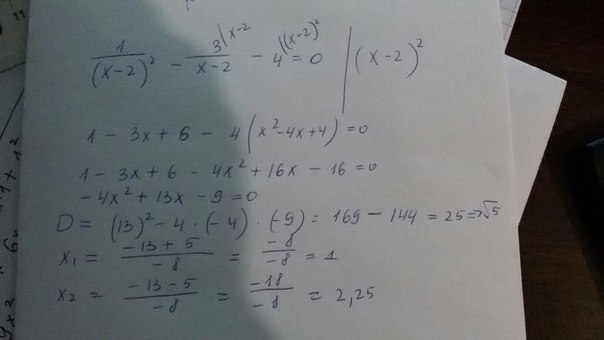 1/(x-2)² - 3\x-2/(x-2) - 4\(x-2)² = 0 | (x-2)²
1 - 3x + 6 - 4(x²-4x+4) = 0
1 - 3x + 6 - 4x² + 16x - 16 = 0
-4x² + 13x - 9 = 0
D = (13)² - 4 · (-4) · (-9) = 169 - 144 = 25 => √5
x₁ = (-13+5)/-8 = -8/-8 = 1
x₂ = (-13-5)/-8 = -18/-8 = 2,25